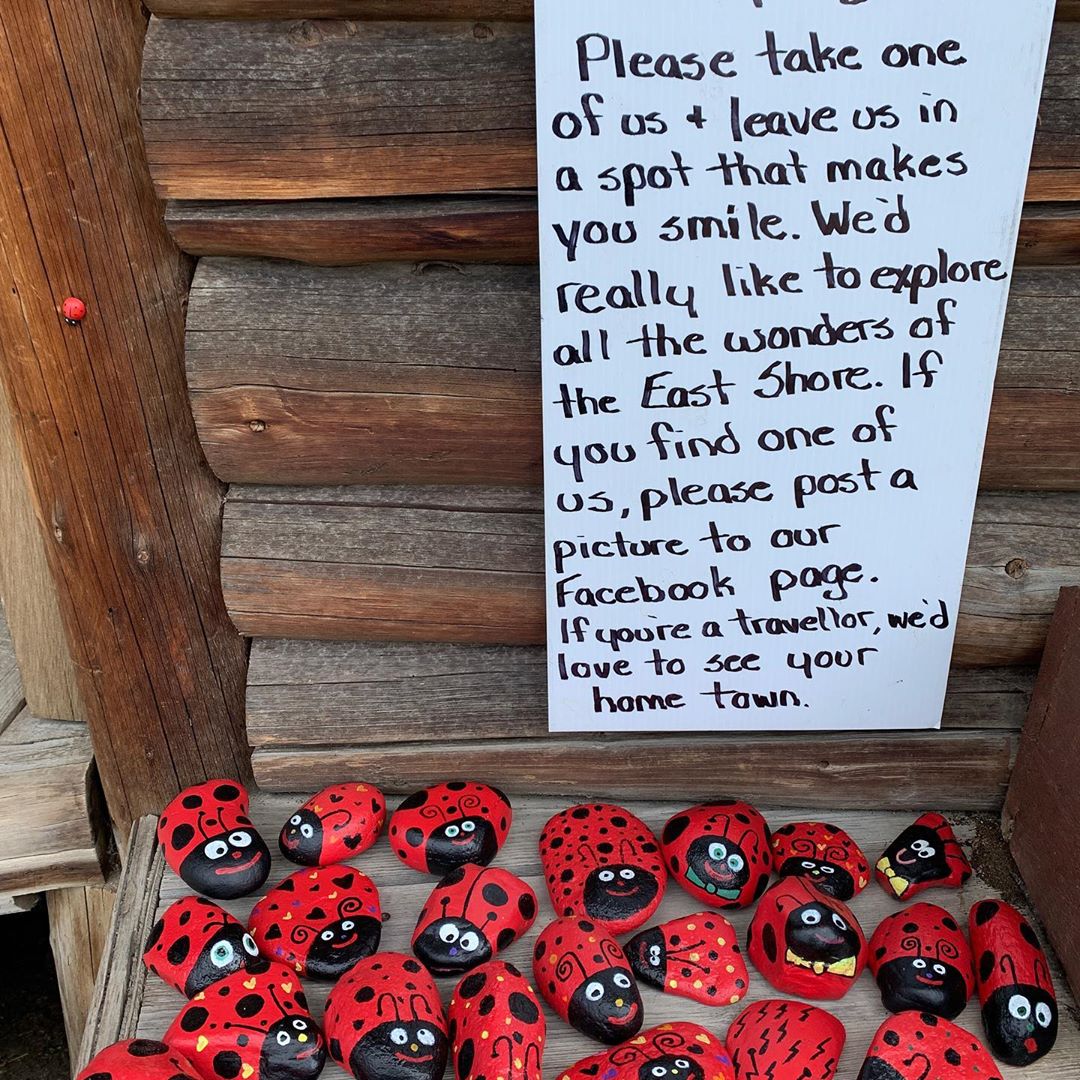 Please take one
of us + leave us in
a spot that makes
you smile. We'd
really like to explore
all the wonders of
the East Shore. If
you find one of
us, please post a
picture to our
Facebook page.
If you're a travellor, we'd
love to see your
home town.